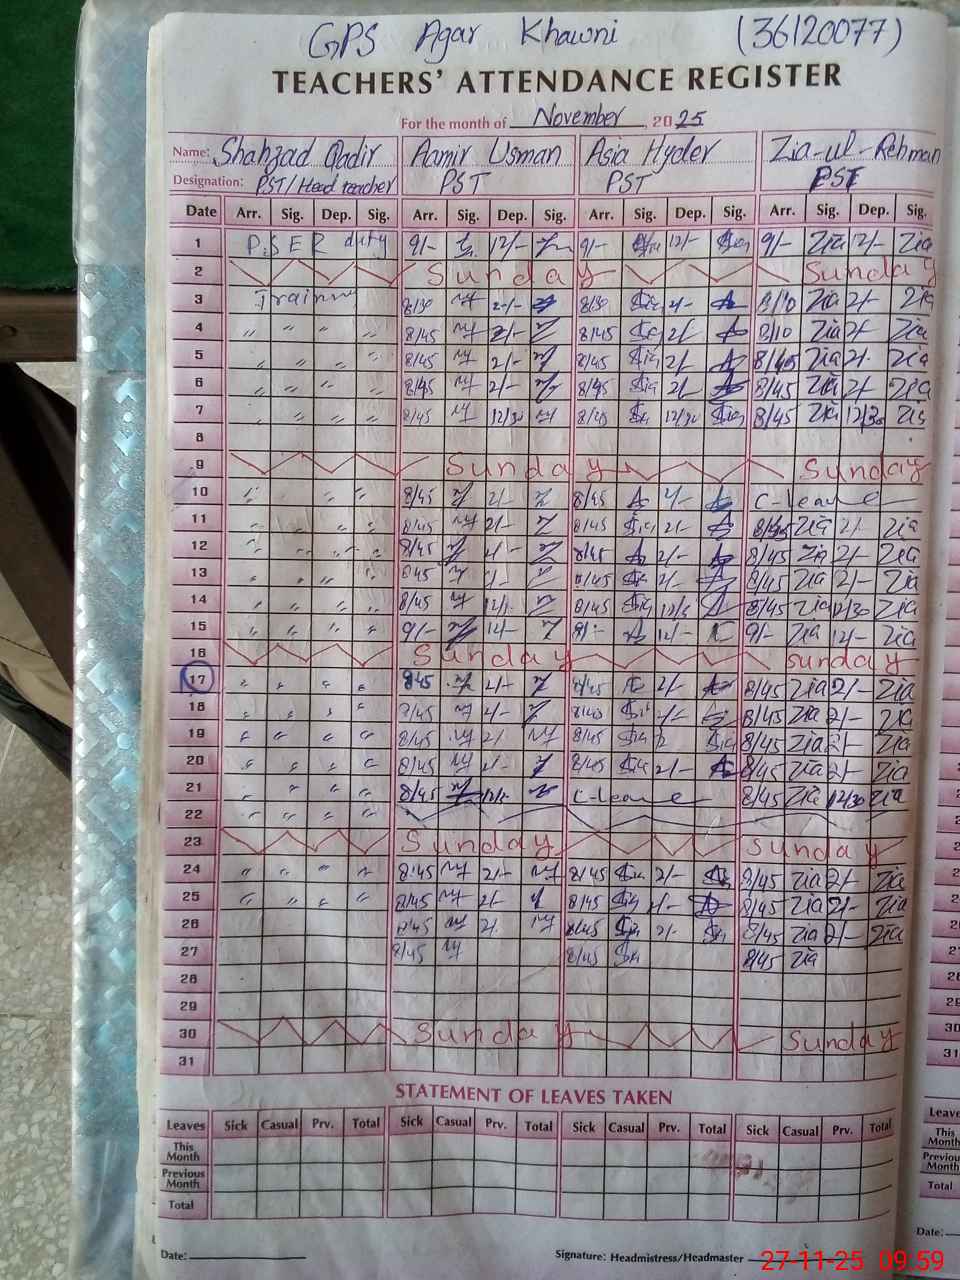 GPS Agar Khawni (36120077)
TEACHERS' ATTENDANCE REGISTER
For the month of November, 2025
Name: Shahzad Qadir Aamir Usman Asia Hyder Zia-ul-Rehman
Designation: PST/Head teacher PST PST PST
Date Arr. Sig. Dep. Sig. Arr. Sig. Dep. Sig. Arr. Sig. Dep. Sig. Arr. Sig. Dep. Sig.
1 P.SER duty 9/- 12/- 9/- 12/- 9/- Zia 12/- Zia
2 Sunday Sunday
3 8/30 2/- 8/30 2/- 8/10 Zia 2/- Zia
4 " " " " 8/45 2/- 8/45 2/- 8/10 Zia 2/- Zia
5 " " " " 8/45 2/- 8/45 2/- 8/45 Zia 2/- Zia
6 " " " " 8/45 2/- 8/45 2/- 8/45 Zia 2/- Zia
7 " " " " 8/45 12/30 8/45 12/30 8/45 Zia 12/30 Zia
8
9 Sunday Sunday
10 " " " " 8/45 2/- 8/45 2/- C-leave
11 " " " " 8/45 2/- 8/45 2/- 8/45 Zia 2/- Zia
12 " " " " 8/45 2/- 8/45 2/- 8/45 Zia 2/- Zia
13 " " " " 8/45 2/- 8/45 2/- 8/45 Zia 2/- Zia
14 " " " " 8/45 12/- 8/45 8/45 Zia 12/30 Zia
15 " " " " 9/- 12/- 9/- 12/- 9/- Zia 12/- Zia
16 Sunday Sunday
17 " " " " 845 2/- 8/45 2/- 8/45 Zia 2/- Zia
18 " " " " 8/45 2/- 8/45 2/- 8/45 Zia 2/- Zia
19 " " " " 8/45 2/- 8/45 2 8/45 Zia 2/- Zia
20 " " " " 8/45 2/- 8/45 2/- 8/45 Zia 2/- Zia
21 " " " " 8/45 C-leave 8/45 Zia 12/30 Zia
22 " " " "
23 Sunday Sunday
24 " " " " 8/45 2/- 8/45 2/- 8/45 Zia 2/- Zia
25 " " " " 8/45 2/- 8/45 2/- 8/45 Zia 2/- Zia
26 8/45 2/- 8/45 2/- 8/45 Zia 2/- Zia
27 8/45 8/45 8/45 Zia
28
29
30 Sunday Sunday
31
STATEMENT OF LEAVES TAKEN
Leaves Sick Casual Prv. Total Sick Casual Prv. Total Sick Casual Prv. Total Sick Casual Prv. Total
This Month
Previous Month
Total
Date: Signature: Headmistress/Headmaster
27-11-25 09:59